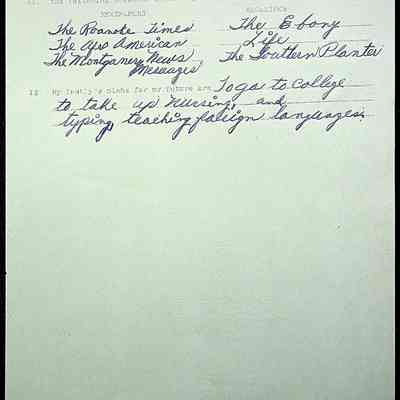 11. The following
NEWSPAPERS MAGAZINES
The Roanoke Times The Ebony
The Afro American Life
The Montgomery News The Southern Planter
Messages
12 My family's plans for my future are To go to College
to take up nursing, and
typing, teaching foreign languages.